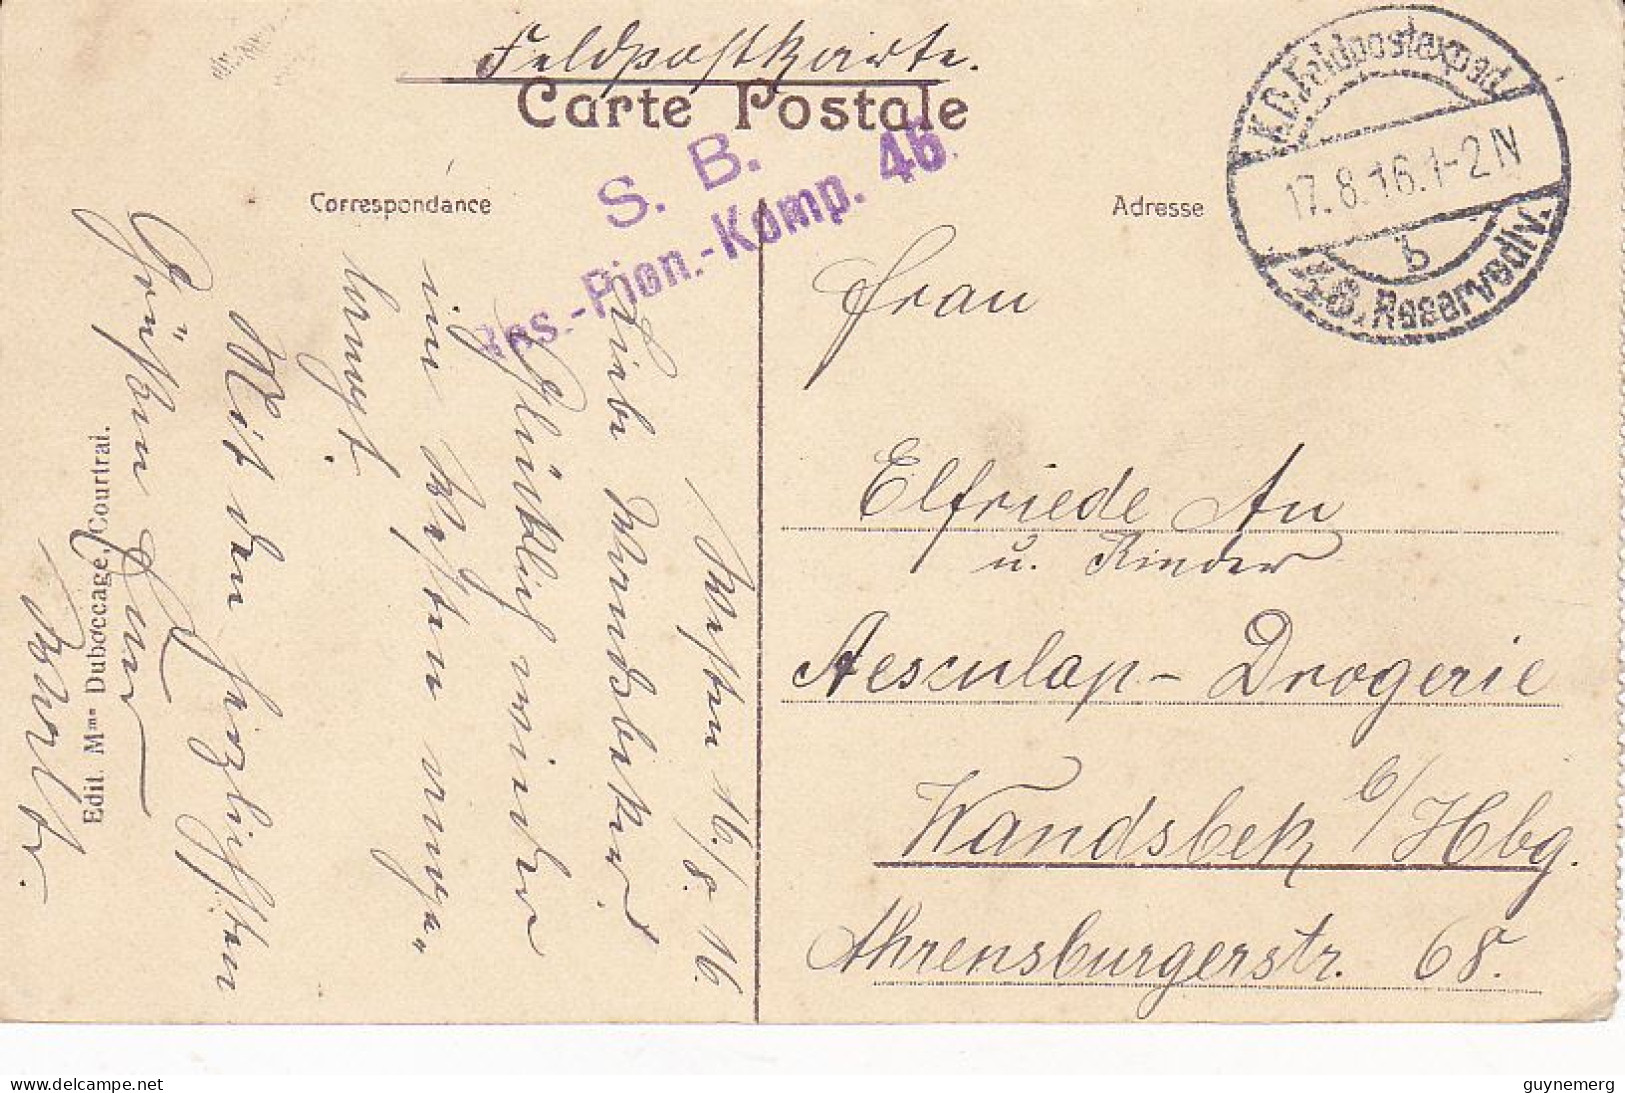 Feldpostkarte.
Carte Postale
S. B.
Res.-Pion.-Komp. 46.
Correspondance
Adresse
K.D. Feldpostexped.
17.8.16.1-2 N
b
46. Reservediv.
Westen 16./8. 16.
Liebe Wandsbeker
Glücklich wieder
im Westen ange„
langt.
Mit den herzlichsten
Grüßen Euer
Frau
Elfriede Au
u. Kinder
Aesculap-Drogerie
Wandsbek b/Hbg.
Ahrensburgerstr. 68.
Edit. Mme Duboccage, Courtrai.
delcampe.net
guynemerg